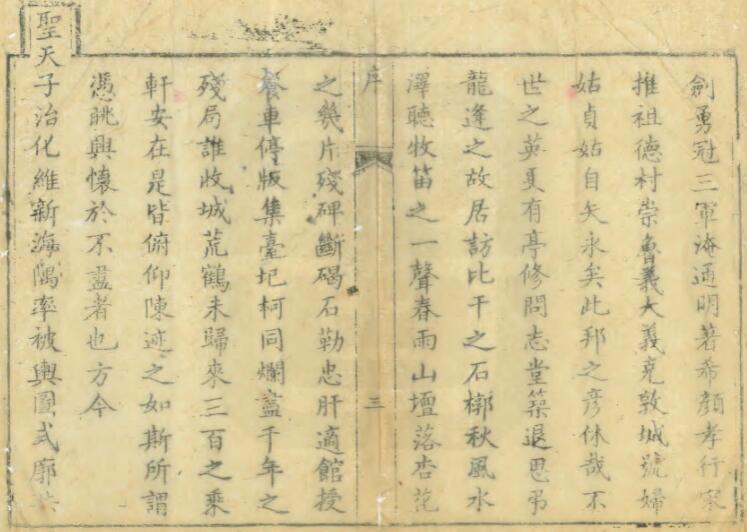 劍勇冠三軍海通明著希顏孝行宋
推祖德村崇魯義大義克敦城號婦
姑貞姑自矢永矣此邦之彥休哉不
世之英更有亭修問志堂築退思弔
龍逢之故居訪比干之石槨秋風水
澤聽牧笛之一聲春雨山壇落杏花
序 三
之幾片殘碑斷碣石勒忠肝適館授
餐車停版集臺圯柯同爛盡千年之
殘局誰收城荒鶴未歸來三百之乘
軒安在是皆俯仰陳迹之如斯所謂
憑眺興懷於不盡者也方今
聖天子治化維新海隅率被輿圖式廓